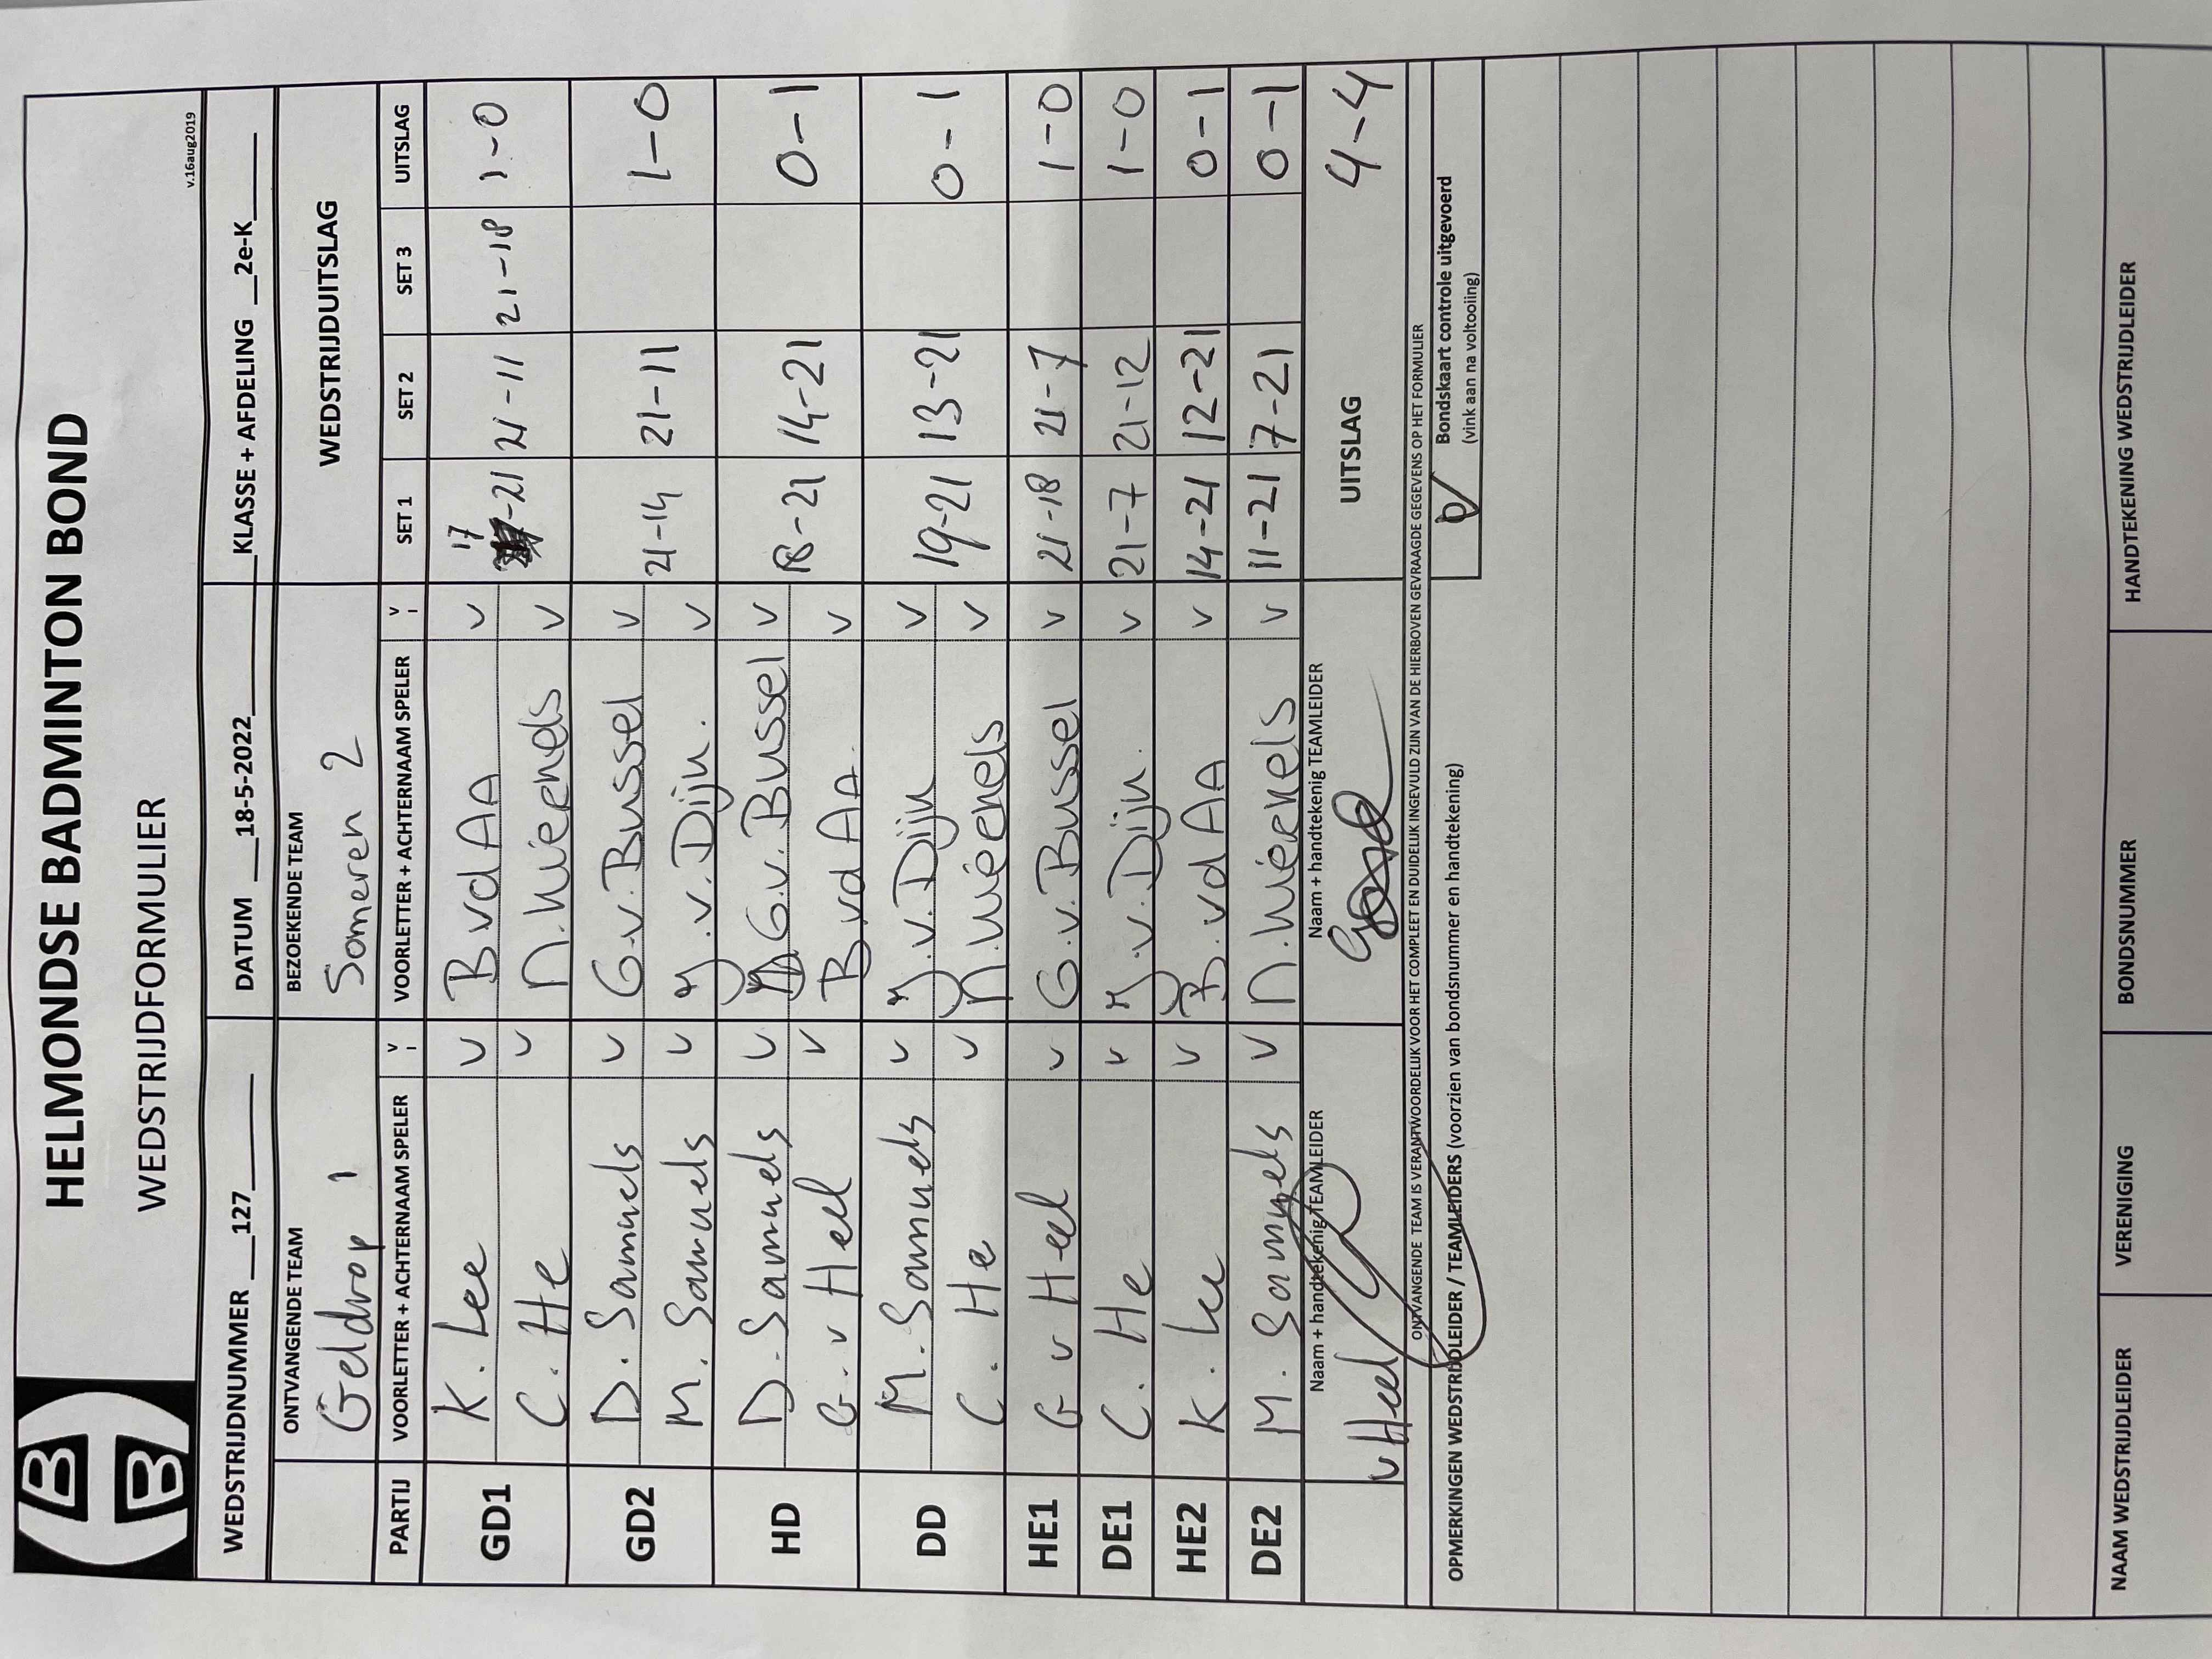 HELMONDSE BADMINTON BOND
WEDSTRIJDFORMULIER
v.16aug2019
WEDSTRIJDNUMMER __127____ DATUM __18-5-2022____ KLASSE + AFDELING __2e-K____
ONTVANGENDE TEAM BEZOEKENDE TEAM WEDSTRIJDUITSLAG
Geldrop 1 Someren 2
PARTIJ VOORLETTER + ACHTERNAAM SPELER V VOORLETTER + ACHTERNAAM SPELER V SET 1 SET 2 SET 3 UITSLAG
GD1 K. Lee v B vd AA v 17-21 21-11 21-18 1-0
C. He v N. Wieènels v
GD2 D. Samuels v G.v. Bussel v 21-14 21-11 1-0
M. Samuels v J.v. Dijn. v
HD D. Samuels v G.v. Bussel v 18-21 14-21 0-1
G. v Heel v B. vd AA. v
DD M. Samuels v J.v. Dijn v 19-21 13-21 0-1
C. He v v
HE1 G v Heel v G.v. Bussel v 21-18 21-7 1-0
DE1 C. He v J.v. Dijn. v 21-7 21-12 1-0
HE2 K. Lee v B. vd AA v 14-21 12-21 0-1
DE2 M. Samuels v v 11-21 7-21 0-1
Naam + handtekenig TEAMLEIDER Naam + handtekenig TEAMLEIDER UITSLAG 4-4
v Heel
ONTVANGENDE TEAM IS VERANTWOORDELIJK VOOR HET COMPLEET EN DUIDELIJK INGEVULD ZIJN VAN DE HIERBOVEN GEVRAAGDE GEGEVENS OP HET FORMULIER
OPMERKINGEN WEDSTRIJDLEIDER / TEAMLEIDERS (voorzien van bondsnummer en handtekening) Bondskaart controle uitgevoerd
(vink aan na voltooiing)
NAAM WEDSTRIJDLEIDER VERENIGING BONDSNUMMER HANDTEKENING WEDSTRIJDLEIDER